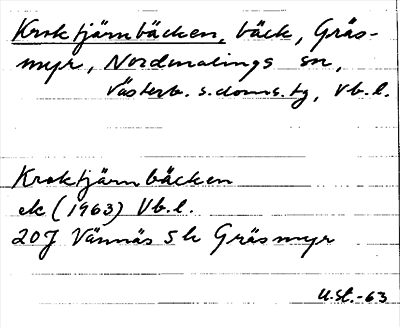 Kroktjärnbäcken, bäck, Gräs-
myr, Nordmalings sn,
Västerb. s. doms. tg, Vb. l.
Kroktjärnbäcken
ek (1963) Vb. l.
20J Vännäs Sh Gräsmyr
U.St.-63